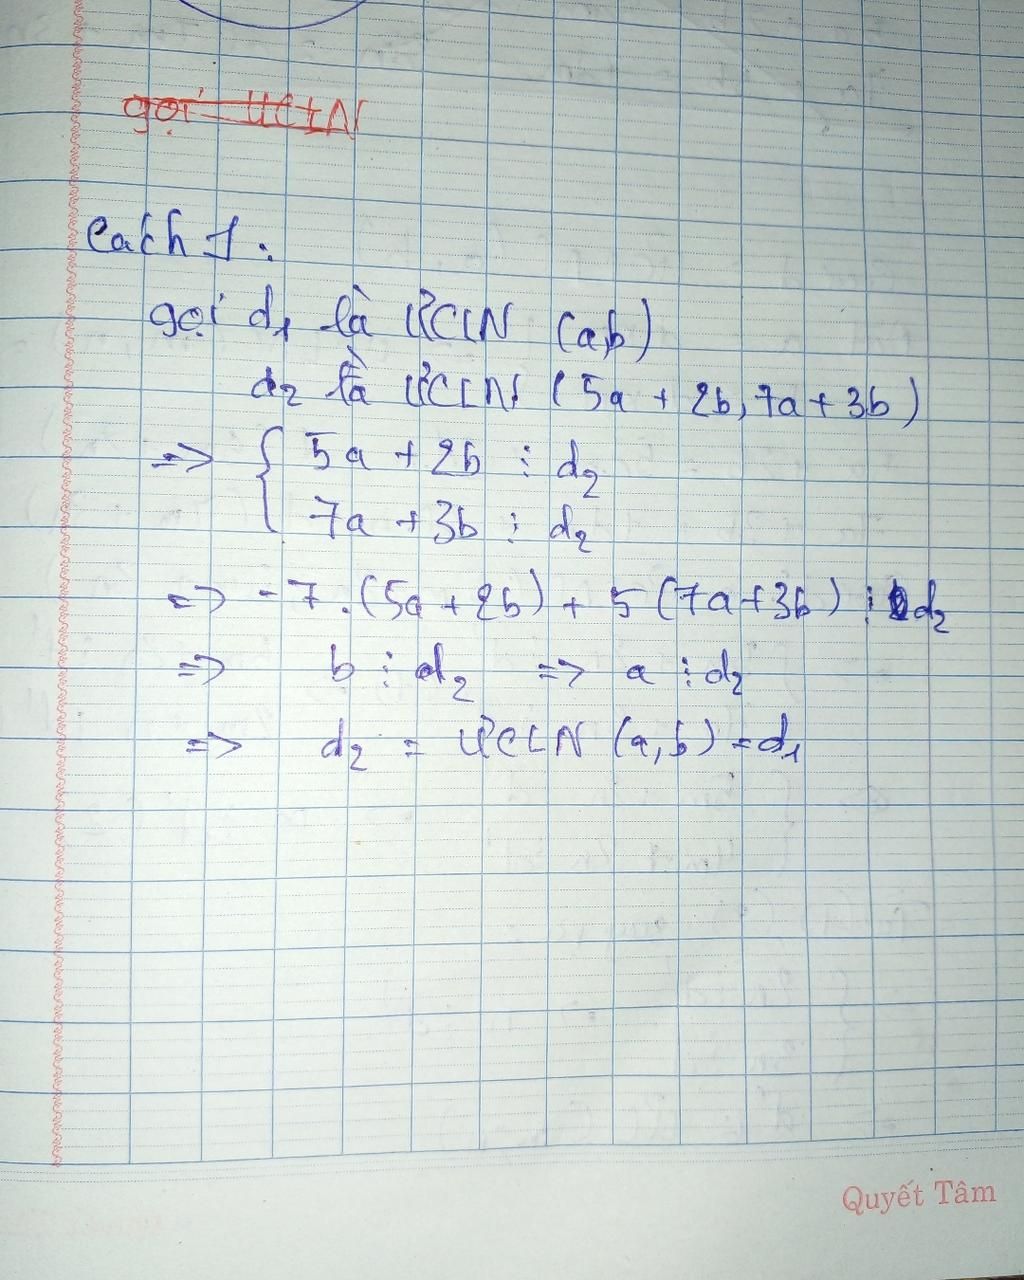 gọi ƯCLN
Cách 1:
gọi d₁ là ƯCLN (a,b)
d₂ là ƯCLN (5a + 2b, 7a + 3b)
=> { 5a + 2b ⋮ d₂
7a + 3b ⋮ d₂
=> -7.(5a + 2b) + 5(7a+3b) ⋮ d₂
=> b ⋮ d₂ => a ⋮ d₂
=> d₂ = ƯCLN (a,b) = d₁
Quyết Tâm